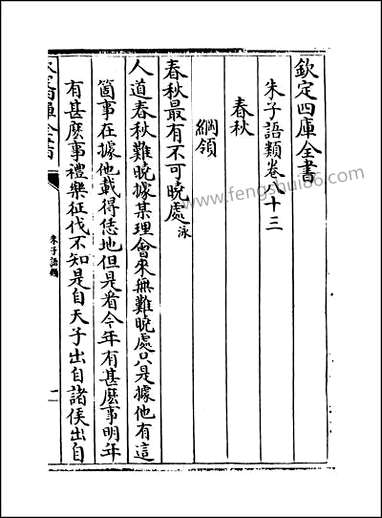 欽定四庫全書
朱子語類卷八十三
春秋
綱領
春秋最有不可曉處泳
人道春秋難曉據某理會來無難曉處只是據他有這
箇事在據他載得恁地但是看今年有甚麽事明年
有甚麽事禮樂征伐不知是自天子出自諸侯出自
朱子語類
一
www.fengshui66.com